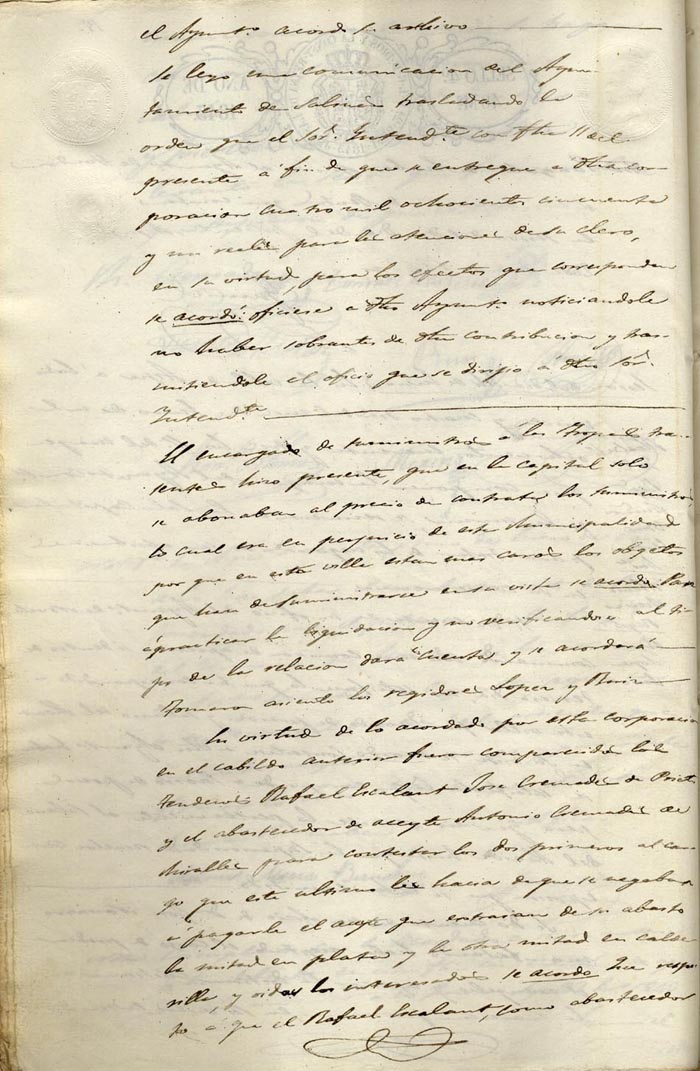 el Ayunto. acordó su archivo
Se leyo una comunicacion del Ayun-
tamiento de Salinas trasladando la
orden que el Sor. Intendte. con fha 11 del
presente á fin de que se entregue a dha cor-
poracion cuatro mil ochocientos cincuenta
y un reales para las atenciones de su clero,
en su virtud, para los efectos que correspondan
se acordó: oficiese a dho Ayunto. noticiandole
no haber sobrantes de dha contribucion y tras-
mitiendole el oficio que se dirijio á dho Sor.
Intendte.
El encargado de suministros á las Tropas tra-
seuntes hizo presente, que en la capital solo
se abonaban al precio de contrata los suministros,
lo cual era en perjuicio de esta Municipalidad
por que en esta villa estan mas caros los obgetos
que han de suministrarse en su vista se acordó: Pase
á practicar la liquidacion y no verificandose al ti-
po de la relacion dará cuenta y se acordará
Tomaron asiento los regidores Lopez y Ruiz
En virtud de lo acordado por esta corporacion
en el cabildo anterior fueron comparecidos los
Tenderos Rafael Escalant Jose Cremades de
y el abastecedor de aceyte Antonio Cremades de
Miralles para contestar los dos primeros al car-
go que este ultimo les hacia de que se negaban
á pagarle el aceyte que extraian de su abasto
la mitad en plata y la otra mitad en calde-
rilla y oidos los interesados se acordó Que respec-
to á que el Rafael Escalant, como abastecedor